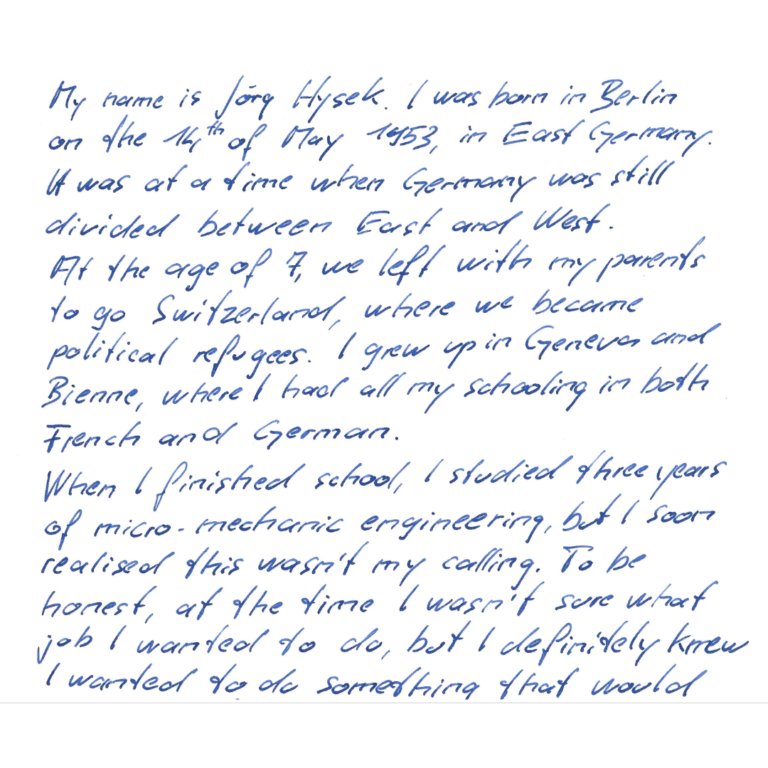 My name is Jörg Hysek. I was born in Berlin
on the 14th of May 1953, in East Germany.
It was at a time when Germany was still
divided between East and West.
At the age of 7, we left with my parents
to go Switzerland, where we became
political refugees. I grew up in Geneva and
Bienne, where I had all my schooling in both
French and German.
When I finished school, I studied three years
of micro-mechanic engineering, but I soon
realised this wasn't my calling. To be
honest, at the time I wasn't sure what
job I wanted to do, but I definitely knew
I wanted to do something that would